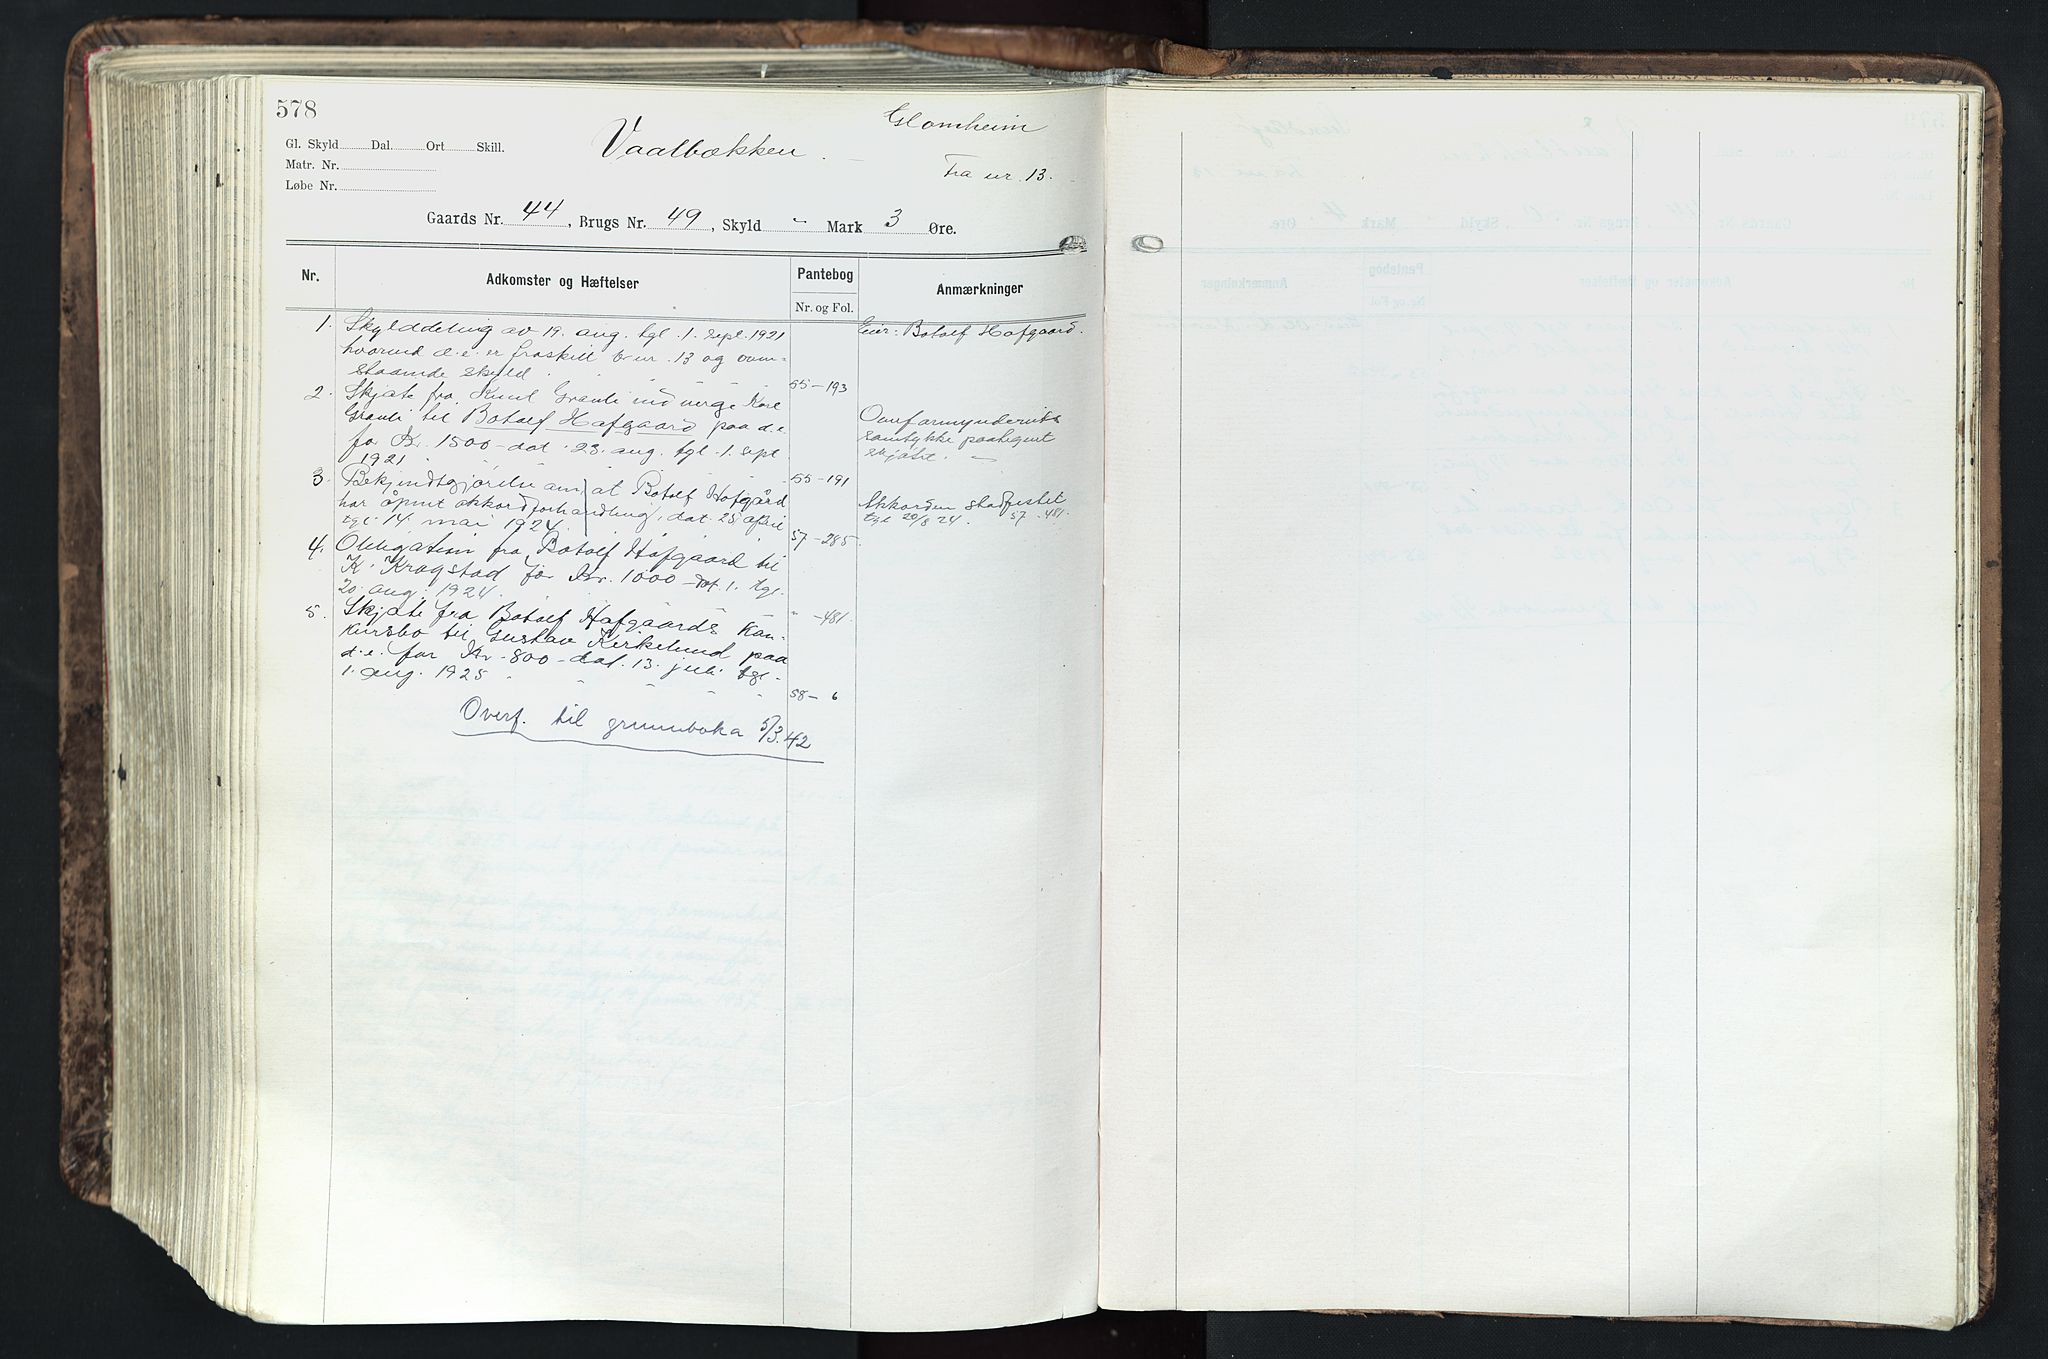 578
Glomheim
Gl. Skyld Dal. Ort Skill.
Vaalbækken.
Matr. Nr.
Fra nr. 13.
Løbe Nr.
Gaards Nr. 44, Brugs Nr. 49, Skyld - Mark 3 Øre.
Nr. Adkomster og Hæftelser Pantebog Anmærkninger
Nr. og Fol.
1. Skylddeling av 19. aug. tgl. 1. sept. 1921 Eier: Botolf Hofgaard.
hvorved d.e. er fraskilt b.nr. 13 og oven-
staaende skyld. 55-193
2. Skjøte fra Knut Granli med verge Kare
Granli til Botolf Hofgaard paa d.e. Overformynderiets
for Kr. 1500 - dat. 23. aug. tgl. 1. sept samtykke paategnet
1921. skjøtet.
55-191
3. Bekjendtgjørelse om, at Botolf Hofgård
har åpnet akkordforhandling, dat. 28 april Akkorden stadfestet
tgl. 14. mai 1924. tgl 20/8 24. 57-481.
57-285.
4. Obligation fra Botolf Hofgaard til
K. Krogstad for Kr. 1000 - dat. 1. tgl.
20. aug. 1924. " -481.
5. Skjøte fra Botolf Hofgaards kon-
kursbo til Gustav Kirkelund paa
d.e. for Kr. 800 - dat. 13. juli tgl.
1. aug. 1925 58- 6
Overf. til grunnboka 5/3.42